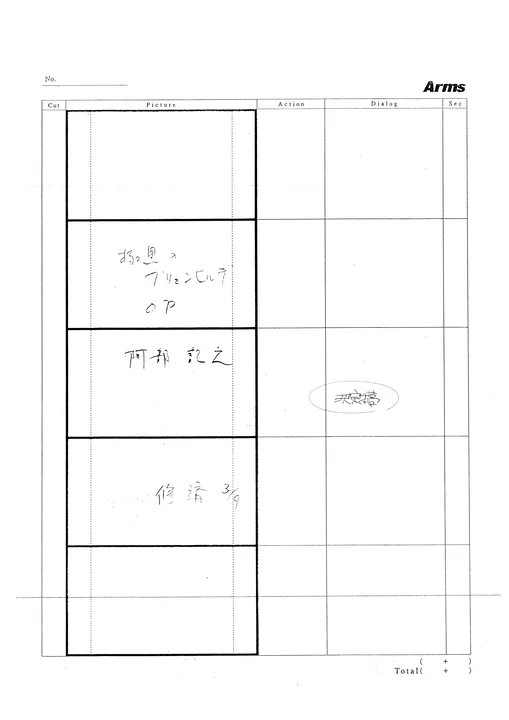 No.
Arms
Cut Picture Action Dialog Sec
極黒の
ブリュンヒルデ
OP
阿部 記之
決定稿
修 済 3/9
( + )
Total( + )